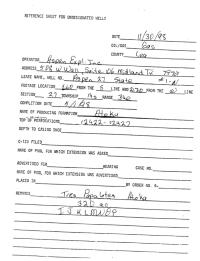 REFERENCE SHEET FOR UNDESIGNATED WELLS
DATE 11/30/98
CO./GOV. Gas
COUNTY Lea
OPERATOR Aspen Expl. Inc
ADDRESS 508 W Wall, Suite Midland TX
LEASE NAME, WELL NO. Aspen 27 State
FOOTAGE LOCATION 660 FROM THE S LINE AND FROM THE LINE
SECTION 27 TOWNSHIP RANGE
COMPLETION DATE
NAME OF PRODUCING FORMATION Atoka
TOP OF PERFORATIONS 12422-12427
DEPTH TO CASING SHOE
C-123 FILED
NAME OF POOL FOR WHICH EXTENSION WAS ASKED
ADVERTISED FOR HEARING CASE NO.
NAME OF POOL, FOR WHICH EXTENSION WAS ADVERTISED
PLACED IN BY ORDER NO. R-
REMARKS Tres Papalotes Atoka
320 ac
I J K L M N O P